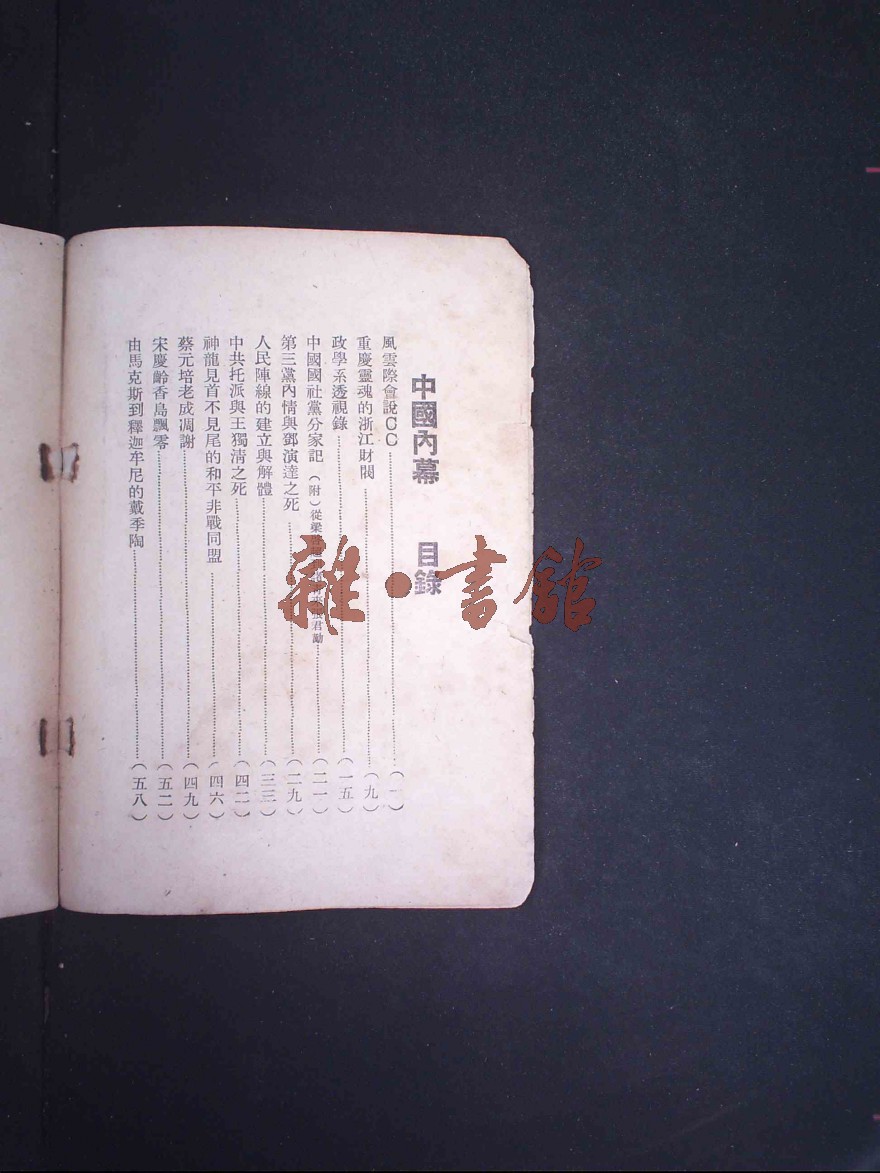 中國內幕　目錄
風雲際會說CC……(一)
重慶靈魂的浙江財閥……(九)
政學系透視錄……(一五)
中國國社黨分家記(附)從梁……君勱……(二一)
第三黨內情與鄧演達之死……(二九)
人民陣線的建立與解體……(三三)
中共托派與王獨清之死……(四二)
神龍見首不見尾的和平非戰同盟……(四六)
蔡元培老成凋謝……(四九)
宋慶齡香島飄零……(五二)
由馬克斯到釋迦牟尼的戴季陶……(五八)
雜·書館